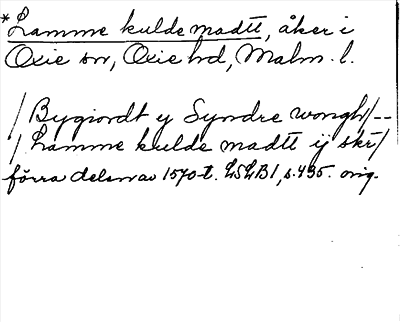 *Lamme kulde madtt, åker i
Oxie sn, Oxie hd, Malm. l.
/Bygiordt y Syndre wongh/--
/Lamme kulde madtt ij skr/
förra delen av 1570-t. LSLB1, s.435. orig.